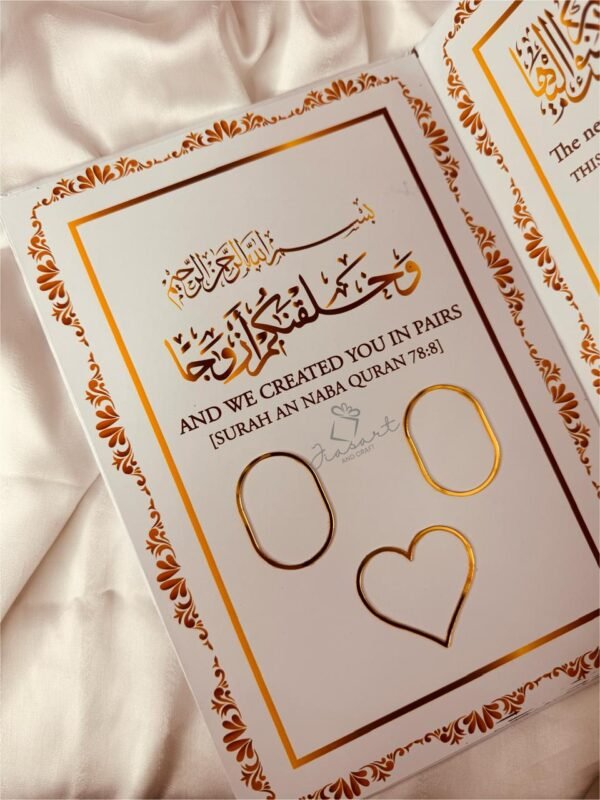 بسم الله الرحمن الرحيم
وَخَلَقْنَٰكُمْ أَزْوَٰجًا
AND WE CREATED YOU IN PAIRS
[SURAH AN NABA QURAN 78:8]
AND CRAFT
The ne
THIS